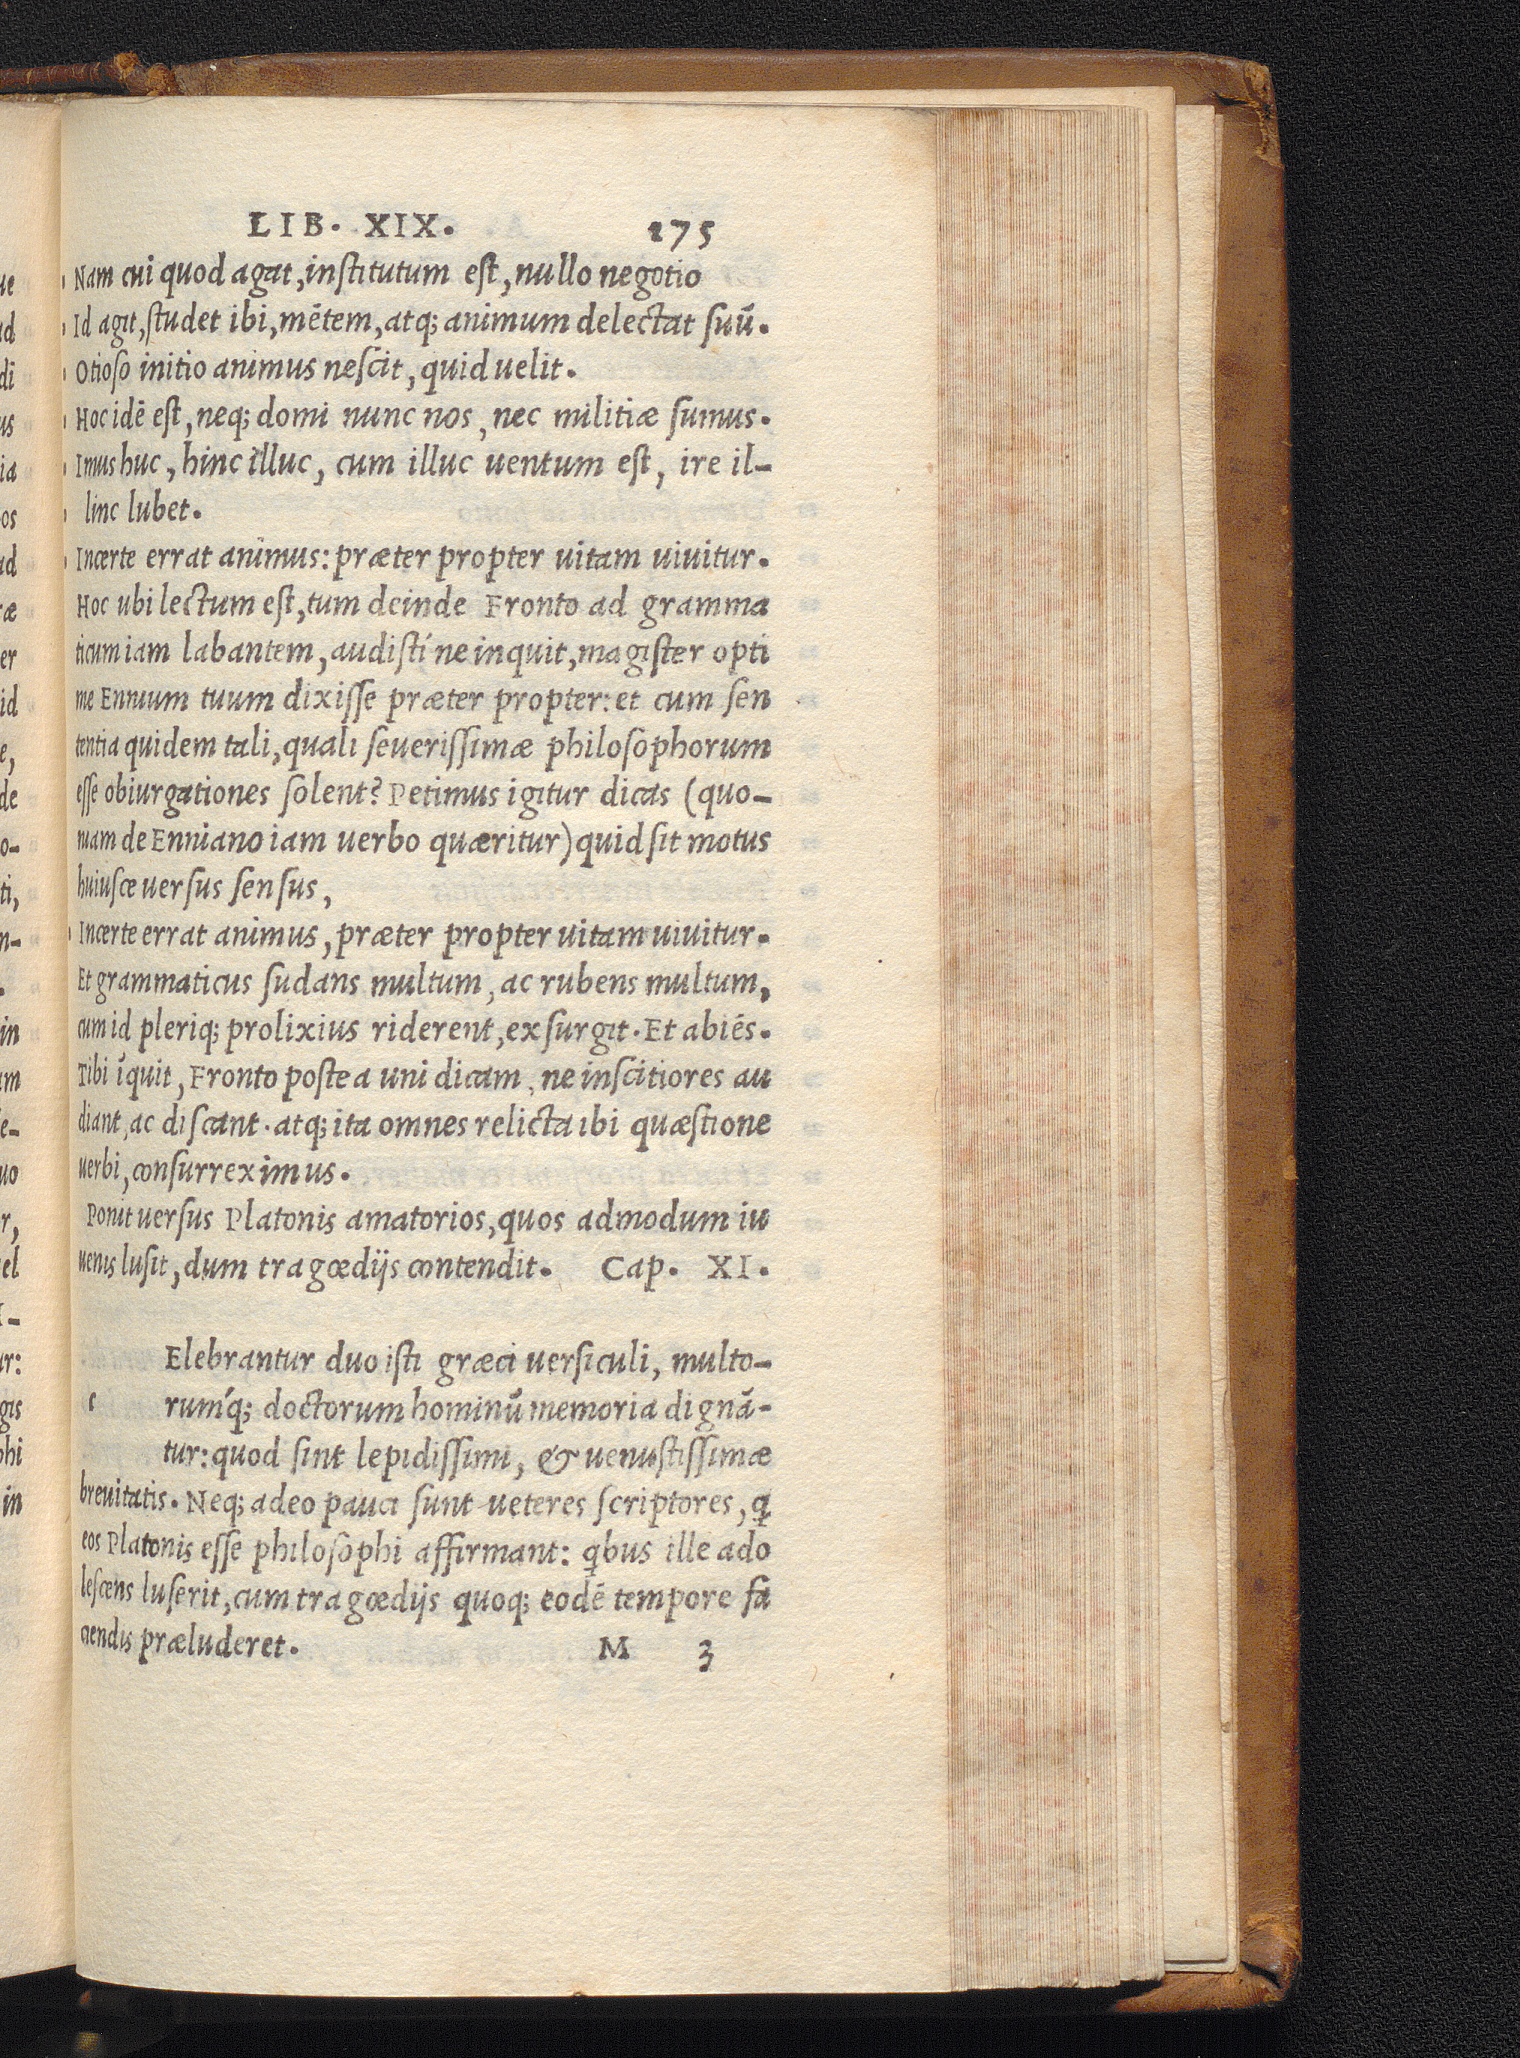 LIB. XIX. 175
Nam cui quod agat, inſtitutum eſt, nullo negotio
Id agit, ſtudet ibi, mētem, atq; animum delectat ſuū.
Otioſo initio animus neſcit, quid uelit.
Hoc idē eſt, neq; domi nunc nos, nec militiæ ſumus.
Imus huc, hinc illuc, cum illuc uentum eſt, ire il-
linc lubet.
Incerte errat animus: præter propter uitam uiuitur.
Hoc ubi lectum eſt, tum deinde Fronto ad gramma
ticum iam labantem, audiſtí ne inquit, magiſter opti
me Ennium tuum dixiſſe præter propter: et cum ſen
tentia quidem tali, quali ſeueriſſimæ philoſophorum
eſſe obiurgationes ſolent? Petimus igitur dicas (quo-
niam de Enniano iam uerbo quæritur) quid ſit motus
huiuſce uerſus ſenſus,
Incerte errat animus, præter propter uitam uiuitur.
Et grammaticus ſudans multum, ac rubens multum,
cum id pleriq; prolixius riderent, exſurgit. Et abiēs.
Tibi īquit, Fronto poſtea uni dicam, ne inſcitiores au
diant, ac diſcant. atq; ita omnes relicta ibi quæſtione
uerbi, conſurreximus.
Ponit uerſus Platonis amatorios, quos admodum iu
uenis luſit, dum tragœdijs contendit. Cap. XI.
Elebrantur duo iſti græci uerſiculi, multo-
c rumq́; doctorum hominū memoria dignā-
tur: quod ſint lepidiſſimi, & uenuſtiſſimæ
breuitatis. Neq; adeo pauci ſunt ueteres ſcriptores, q
eos Platonis eſſe philoſophi affirmant: qbus ille ado
leſcens luſerit, cum tragœdijs quoq; eodē tempore fa
ciendis præluderet. M 3